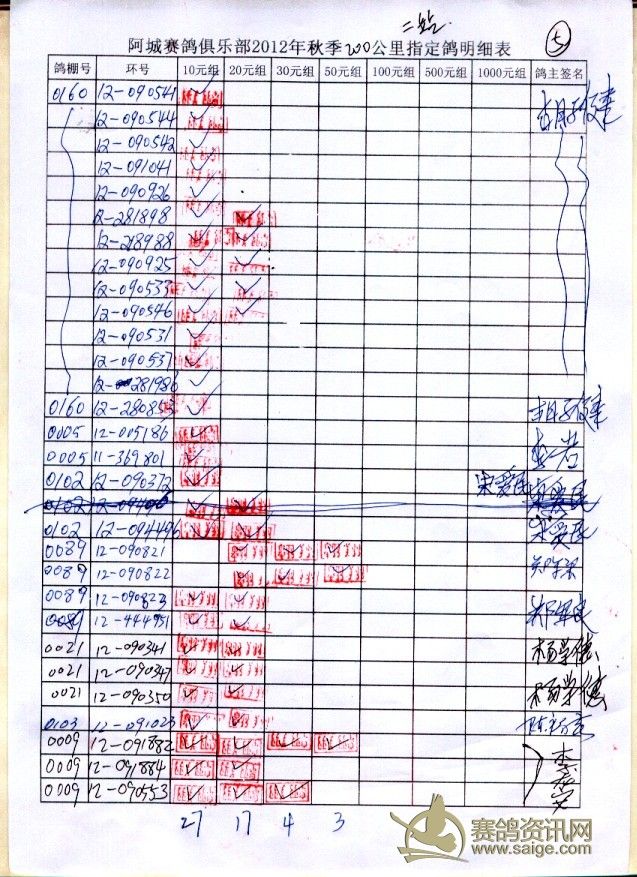 二站
⑤
阿城赛鸽俱乐部2012年秋季200公里指定鸽明细表
鸽棚号 环号 10元组 20元组 30元组 50元组 100元组 500元组 1000元组 鸽主签名
0160 12-090541 ✓
12-090544 ✓
12-090542 ✓
12-091041 ✓
12-090926 ✓
12-281898 ✓ ✓
12-218988 ✓ ✓
12-090925 ✓ ✓
12-090533 ✓ ✓
12-090546 ✓ ✓
12-090531 ✓
12-090537 ✓
12-281986 ✓
0160 12-280853 ✓
0005 12-005186 ✓
0005 11-369801 ✓
0102 12-090372 ✓ 宋爱民
0102 ✓ ✓ 宋爱民
0102 12-094496 ✓ ✓ 宋爱民
0089 12-090821 ✓ ✓ ✓
0089 12-090822 ✓ ✓ ✓
0089 12-090823 ✓ ✓
0089 12-444951 ✓ ✓
0021 12-090341 ✓ ✓ 杨学德
0021 12-090347 ✓ ✓
0021 12-090350 ✓ ✓ 杨学德
0103 12-091023 ✓ ✓
0009 12-091882 ✓ ✓ ✓ ✓
0009 12-091884 ✓ ✓
0009 12-090553 ✓ ✓ ✓
27 17 4 3
赛鸽资讯网
www.saige.com